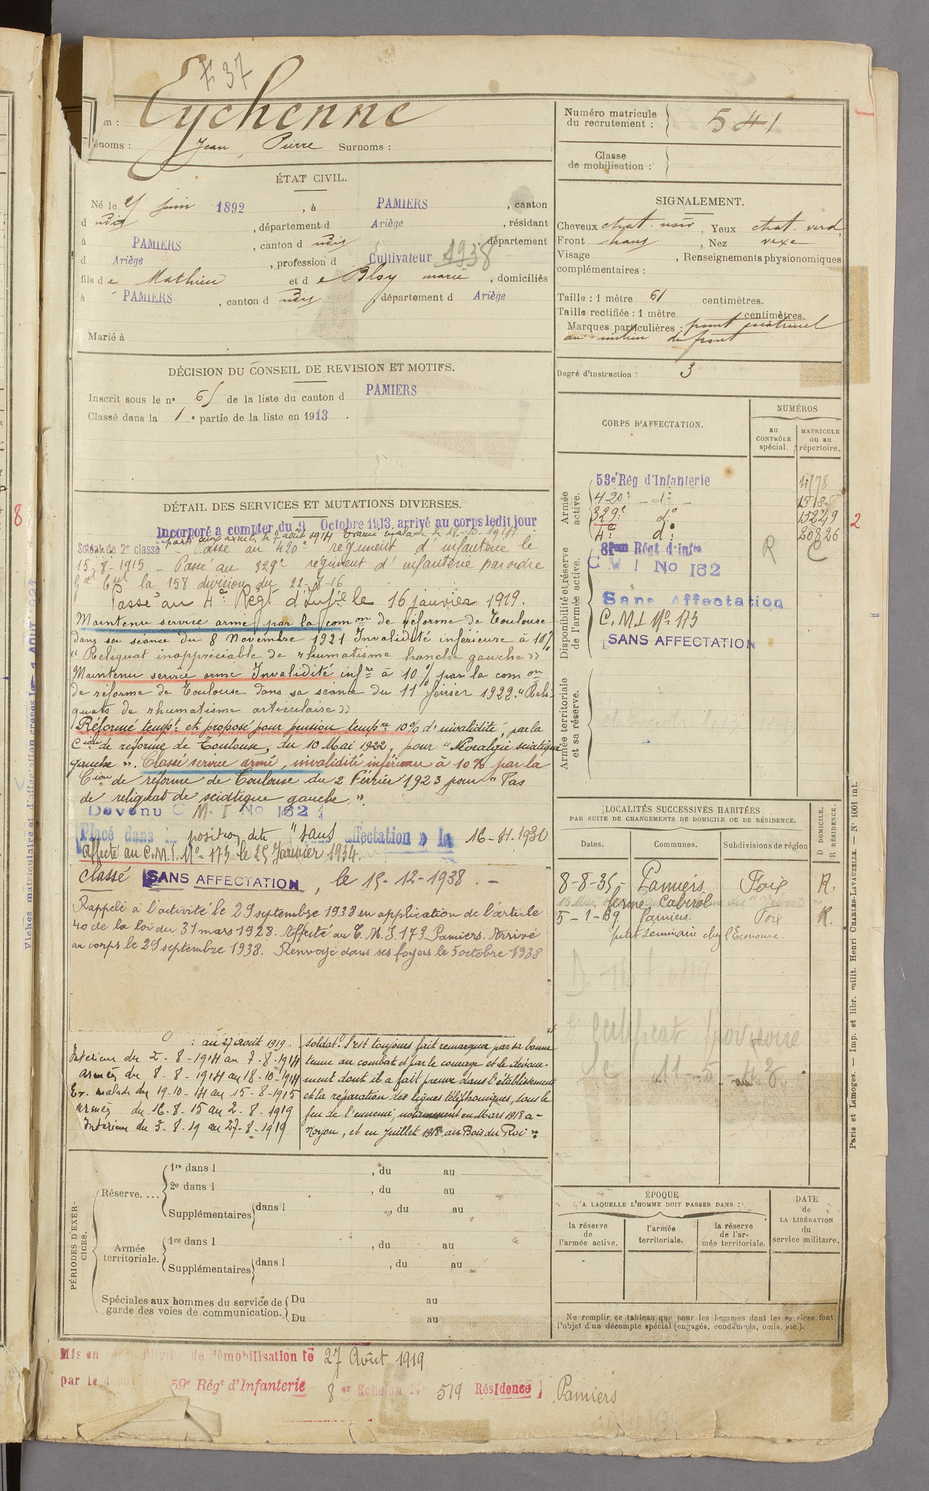 F 37
Eychenne
Numéro matricule du recrutement : 541
énoms : Jean, Pierre Surnoms :
Classe de mobilisation :
ÉTAT CIVIL.
Né le Juin 1892, à PAMIERS, canton
d, département d Ariège, résidant
à PAMIERS, canton d, département
d Ariège, profession d Cultivateur 1938
fils de Mathieu et de marie, domiciliés
à PAMIERS, canton d, département d Ariège
Marié à
SIGNALEMENT.
Cheveux chat. noir, Yeux chat. verd.
Front, Nez vexe
Visage, Renseignements physionomiques
complémentaires :
Taille : 1 mètre 61 centimètres.
Taille rectifiée : 1 mètre centimètres.
Marques particulières :
au milieu du front
Degré d'instruction : 3
DÉCISION DU CONSEIL DE REVISION ET MOTIFS.
Inscrit sous le nº 65 de la liste du canton d PAMIERS
Classé dans la 1e partie de la liste en 1913.
CORPS D'AFFECTATION.
NUMÉROS
au CONTRÔLE spécial.
MATRICULE ou au répertoire.
Armée active.
53e Rég d'Infanterie
420e dº
329e dº
15249
4e dº
20826
Disponibilité et réserve de l'armée active.
Régt. d'Infie
R C
C M I No 162
Sans Affectation
C. M. I Nº 173
SANS AFFECTATION
Armée territoriale et sa réserve.
DÉTAIL DES SERVICES ET MUTATIONS DIVERSES.
Incorporé à compter du 9 Octobre 1913, arrivé au corps ledit jour
Soldat de 2e classe
Passé au 420e régiment d'infanterie le
15-8-1915 _ Passé au 329e régiment d'infanterie par ordre
la 158 division du 22-8-16
Passé au 4e Régt d'Infie le 16 janvier 1919.
Maintenu service armé par la comon de réforme de Toulouse
dans sa séance du 8 Novembre 1921 Invalidité inférieure à 10%
"Reliquat inappréciable de rhumatisme hanche gauche"
Maintenu service armé Invalidité infre à 10% par la comon
de réforme de Toulouse dans sa séance du 11 février 1922. "Reli-
quats de rhumatisme articulaire"
Réformé tempt et proposé pour pension tempre 10% d'invalidité, par la
Cion de réforme de Toulouse, du 10 Mai 1922, pour "Névralgie sciatique
gauche". Classé service armé, invalidité inférieure à 10% par la
Cion de réforme de Toulouse du 2 Février 1923 pour "Pas
de reliquat de sciatique gauche".
Devenu C M. I No 162
Placé dans la position dite "sans affectation" le 16-4-1930
Affecté au C.M.I. Nº 173 le 25 Janvier 1934.
Classé SANS AFFECTATION, le 15-12-1938. -
Rappelé à l'activité le 29 septembre 1938 en application de l'article
40 de la loi du 31 mars 1928. Affecté au C.M.I 173 Pamiers. Arrivé
au corps le 29 septembre 1938. Renvoyé dans ses foyers le 5 octobre 1938
LOCALITÉS SUCCESSIVES HABITÉES
PAR SUITE DE CHANGEMENTS DE DOMICILE OU DE RÉSIDENCE.
Dates. Communes. Subdivisions de région
D DOMICILE, R RÉSIDENCE.
8-8-35 Pamiers Foix R.
ferme Cabirol
5-1-39 Pamiers Foix R.
petit séminaire chez l'Econome
Certificat provisoire
11-5-48
: au 27 août 1919.
Intérieur du 2-8-1914 au 7-8-1914
armées du 8-8-1914 au 18-10-1914
Ev. malade du 19-10-14 au 15-8-1915
armées du 16-8-15 au 2-8-1919
Intérieur du 3-8-19 au 27-8-1919
soldat. S'est toujours fait remarquer par sa bonne
tenue au combat et par le courage et le dévoue-
ment dont il a fait preuve dans l'établissement
et la réparation des lignes téléphoniques, sous le
feu de l'ennemi, notamment en Mars 1918 à
Noyon, et en Juillet 1918 au Bois du Roi".
PÉRIODES D'EXERCICES.
Réserve....
1re dans l , du au
2e dans l , du au
Supplémentaires dans l , du au
Armée territoriale.
1re dans l , du au
Supplémentaires dans l , du au
Spéciales aux hommes du service de garde des voies de communication.
Du au
Du au
ÉPOQUE
A LAQUELLE L'HOMME DOIT PASSER DANS :
la réserve de l'armée active.
l'armée territoriale.
la réserve de l'armée territoriale.
DATE de LA LIBÉRATION du service militaire.
Ne remplir ce tableau que pour les hommes dont les services font
l'objet d'un décompte spécial (engagés, condamnés, omis, etc.).
Paris et Limoges. — Imp. et libr. milit. Henri CHARLES-LAVAUZELLE. — Nº 1001 int.
Mis en de démobilisation le 27 Août 1919
par le 59e Régt d'Infanterie 8 Echelon Nº 519 Résidence Pamiers
8
2